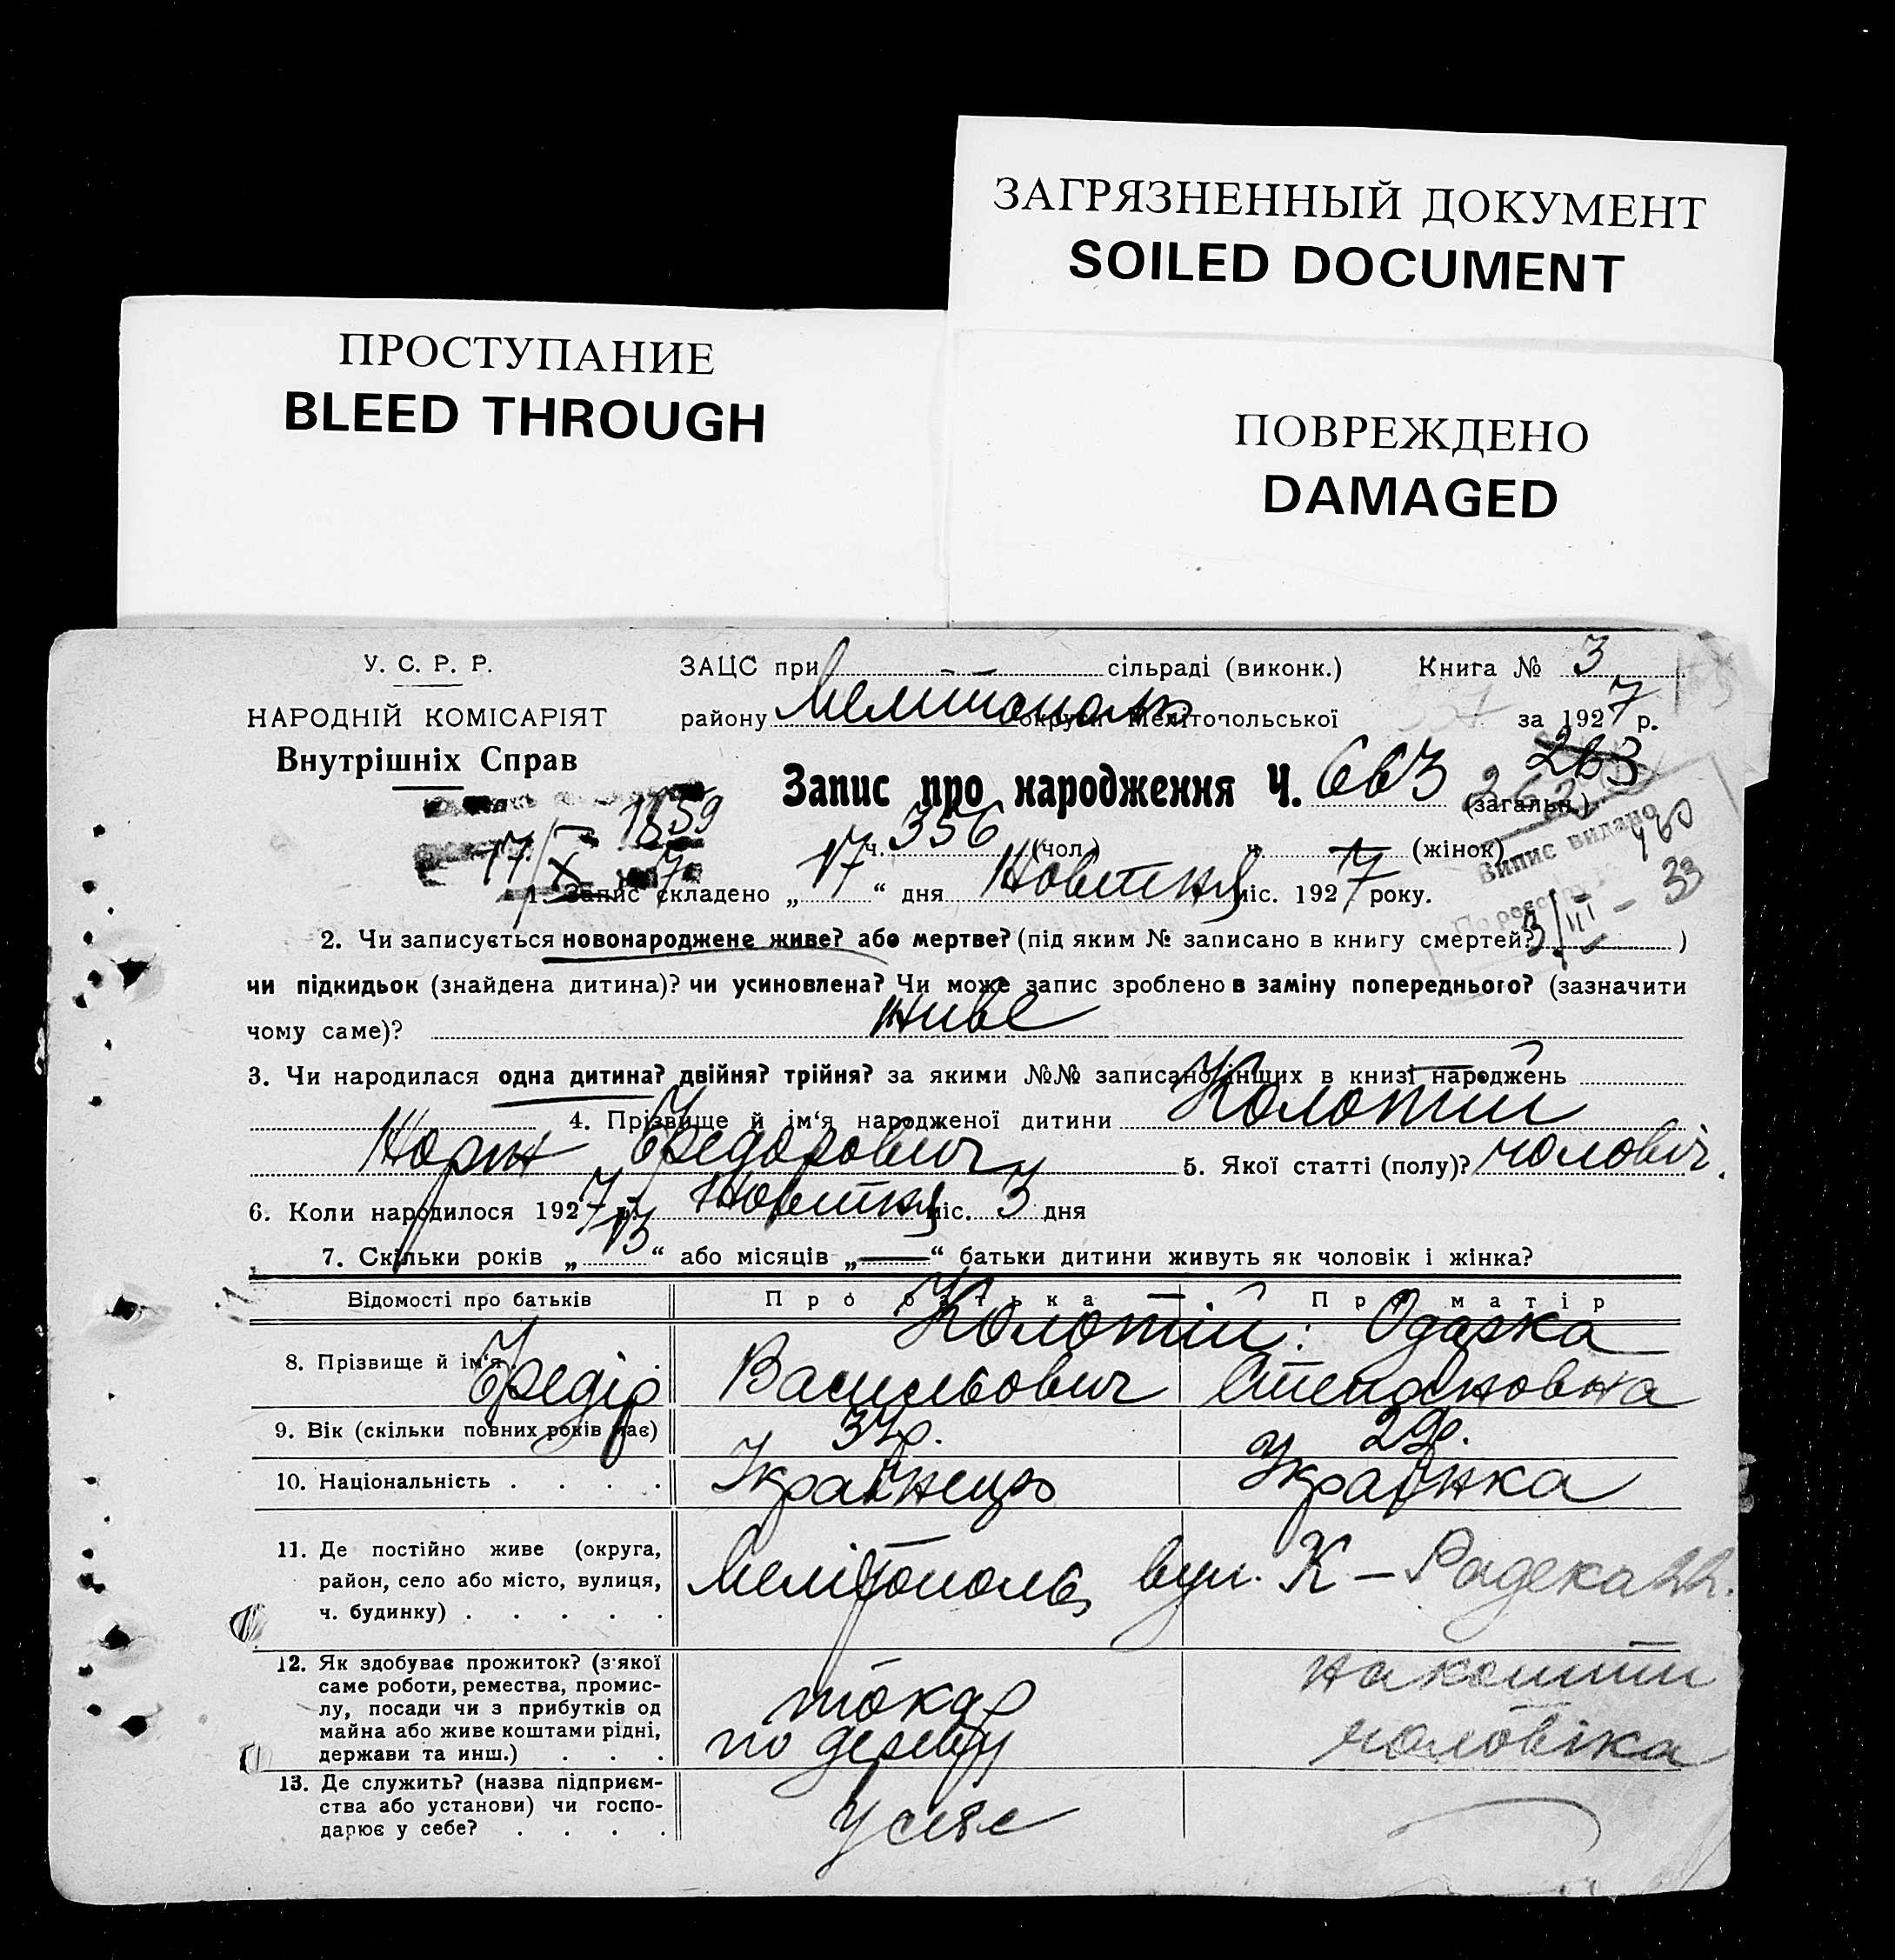 ЗАГРЯЗНЕННЫЙ ДОКУМЕНТ
SOILED DOCUMENT
ПРОСТУПАНИЕ
BLEED THROUGH
ПОВРЕЖДЕНО
DAMAGED
У. С. Р. Р.
НАРОДНІЙ КОМІСАРІЯТ
Внутрішніх Справ
ЗАЦС при сільраді (виконк.) Книга № 3
району Мелітополь округи Мелітопольської за 1927 р.
Запис про народження Ч. 663 263 (загальн.)
262
17/X 1859
ч. 356 (чол.) ч. — (жінок)
Випис видано
33
1. Запис складено „17“ дня Новтня міс. 1927 року.
2. Чи записується новонароджене живе? або мертве? (під яким № записано в книгу смертей? )
чи підкидьок (знайдена дитина)? чи усиновлена? Чи може запис зроблено в заміну попереднього? (зазначити
чому саме)? живе
3. Чи народилася одна дитина? двійня? трійня? за якими №№ записано інших в книзі народжень
4. Прізвище й ім‘я народженої дитини Колотий
Федорович 5. Якої статті (полу)? чоловіч.
6. Коли народилося 1927 р. Жовтня міс. 3 дня
7. Скільки років „13“ або місяців „—“ батьки дитини живуть як чоловік і жінка?
Відомості про батьків Про батька Про матір
Колотій: Одарка
8. Прізвище й ім‘я Федір Васильович Степановна
9. Вік (скільки повних років має) 37р. 29р.
10. Національність . . . . Українець Українка
11. Де постійно живе (округа,
район, село або місто, вулиця,
ч. будинку) . . . . . Мелітополь, вул. К – Радека 22.
12. Як здобуває прожиток? (з якої
саме роботи, ремества, промис-
лу, посади чи з прибутків од
майна або живе коштами рідні,
держави та инш.) . . . токар по дереву на кошти чоловіка
13. Де служить? (назва підприєм-
ства або установи) чи госпо-
дарює у себе? . . . . У себе